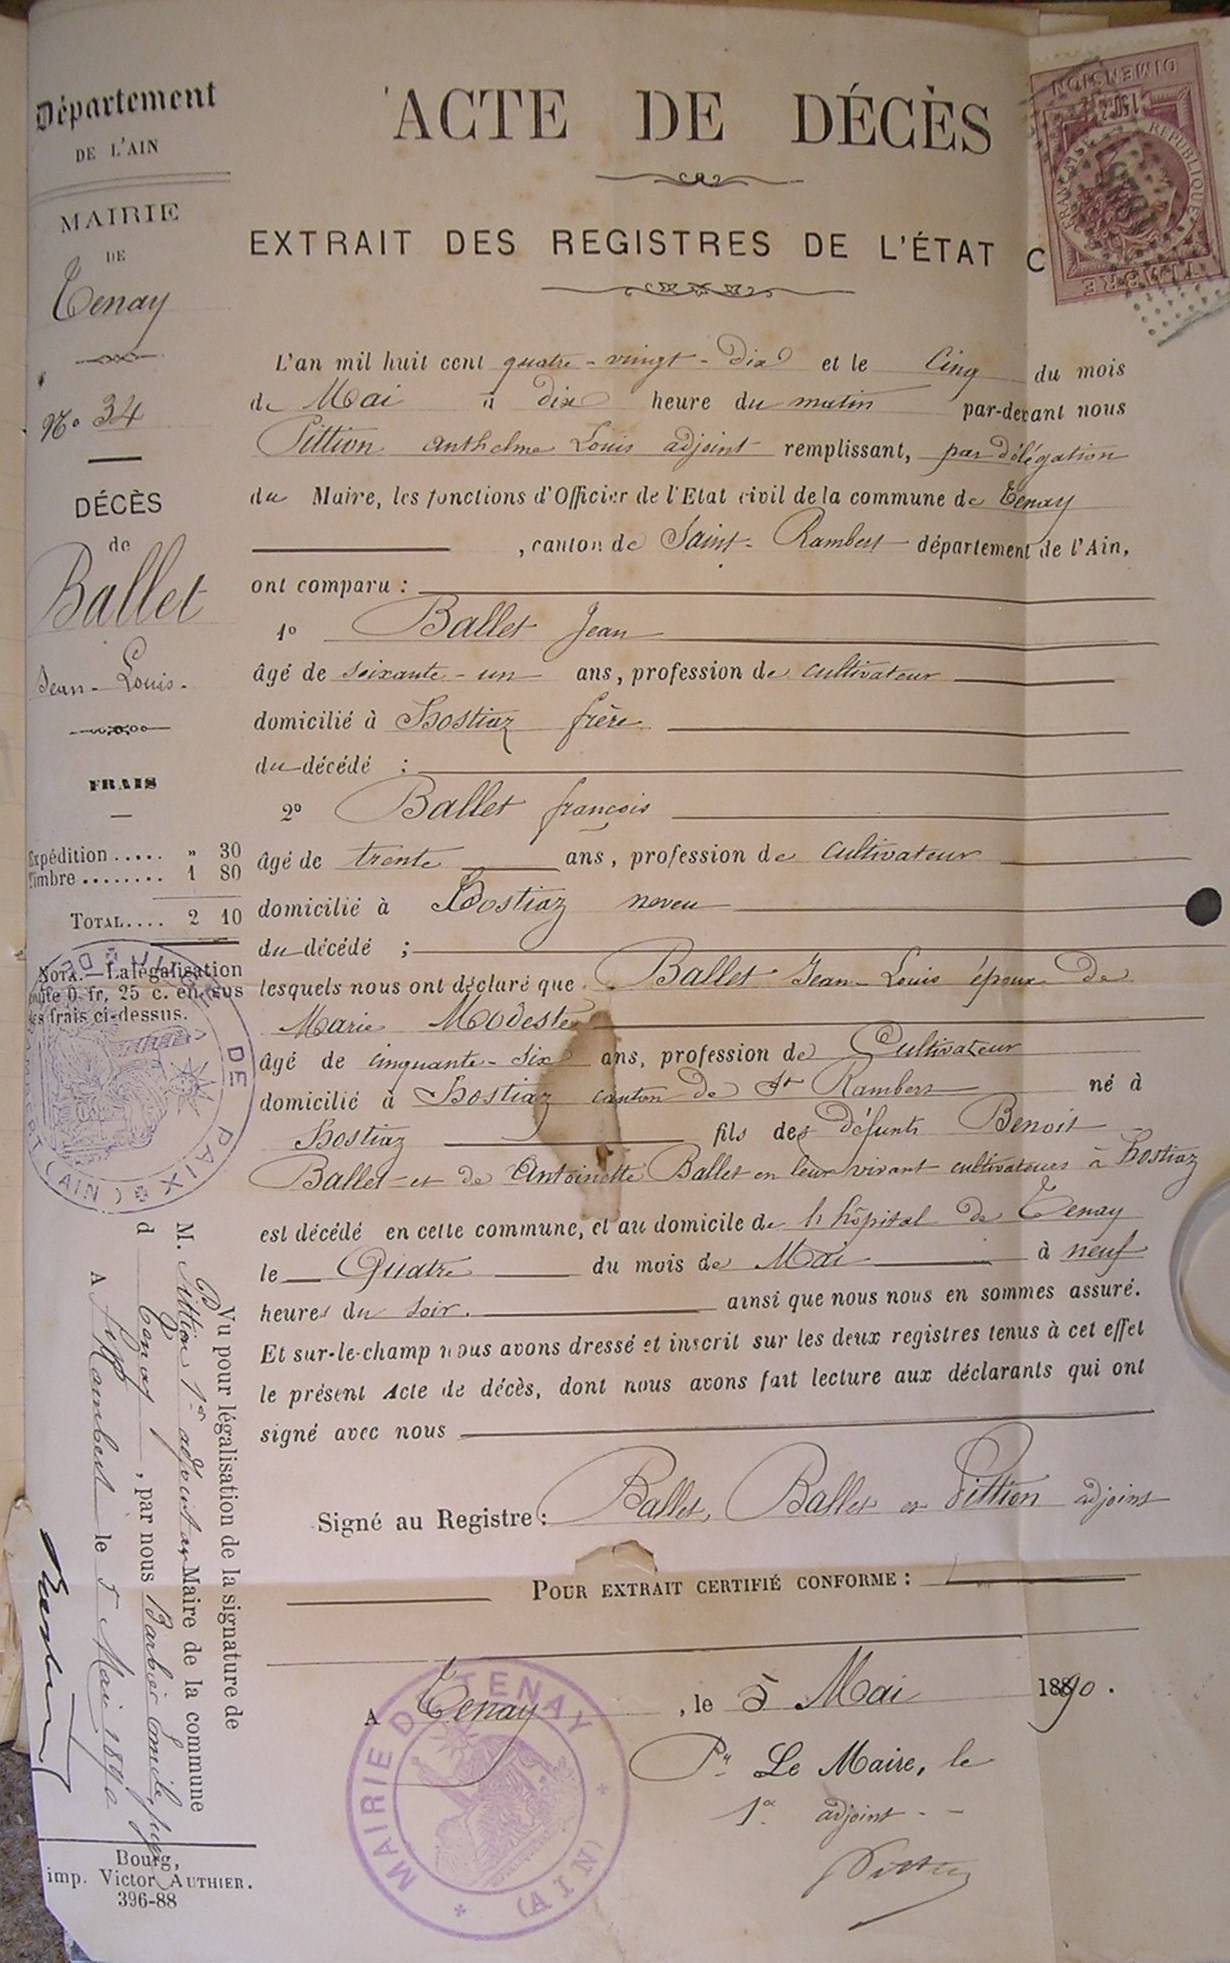 Département
DE L'AIN
MAIRIE
DE
Tenay
No 34
DÉCÈS
de
Ballet
Jean-Louis.
FRAIS
Expédition ..... " 30
Timbre ........ 1 80
TOTAL.... 2 10
NOTA.—La légalisation
coûte 0 fr. 25 c. en sus
des frais ci-dessus.
DE PAIX
(AIN)
ACTE DE DÉCÈS
EXTRAIT DES REGISTRES DE L'ÉTAT C
DIMENSION
RÉPUBLIQUE FRANÇAISE
TIMBRE
L'an mil huit cent quatre-vingt-Dix et le Cinq du mois
de Mai à dix heure du matin par-devant nous
Pittion anthelme Louis adjoint remplissant, par délégation
du Maire, les fonctions d'Officier de l'Etat civil de la commune de Tenay
, canton de Saint-Rambert département de l'Ain,
ont comparu :
1o Ballet Jean
âgé de soixante-un ans, profession de cultivateur
domicilié à Hostiaz frère
du décédé :
2o Ballet françois
âgé de trente ans, profession de cultivateur
domicilié à Hostiaz neveu
du décédé ;
lesquels nous ont déclaré que Ballet Jean-Louis époux de
Marie Modeste
âgé de cinquante-six ans, profession de Cultivateur
domicilié à Hostiaz canton de St Rambert né à
Hostiaz fils des défunts Benoit
Ballet et de Antoinette Ballet en leur vivant cultivateurs à hostiaz
est décédé en cette commune, et au domicile de l'hôpital de Tenay
le Quatre du mois de Mai à neuf
heures du soir. ainsi que nous nous en sommes assuré.
Et sur-le-champ nous avons dressé et inscrit sur les deux registres tenus à cet effet
le présent Acte de décès, dont nous avons fait lecture aux déclarants qui ont
signé avec nous
Signé au Registre : Ballet, Ballet et Pittion adjoint
POUR EXTRAIT CERTIFIÉ CONFORME :
A Tenay, le 5 Mai 1890.
Pr Le Maire, le
1er adjoint
MAIRIE DE TENAY
(AIN)
Vu pour légalisation de la signature de
M. Pittion 1er adjoint au Maire de la commune
d Tenay, par nous Barbier Emile,
A St Rambert le 5 Mai 1890
Bourg,
imp. Victor AUTHIER.
396-88